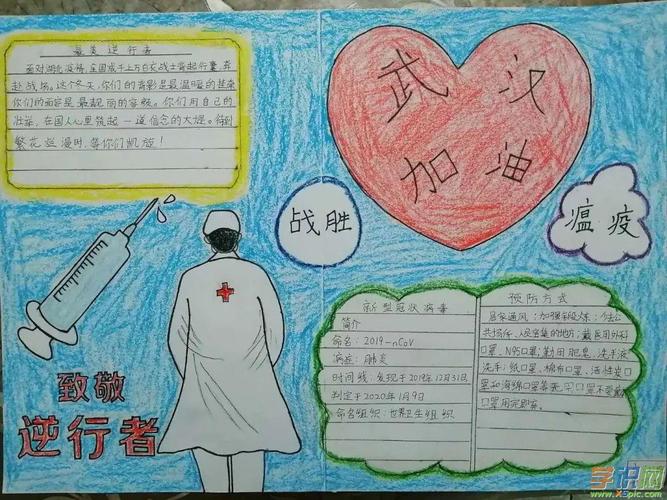 最美逆行者
面对湖北疫情,全国成千上万白衣战士背起行囊,奔
赴战场。这个冬天,你们的背影是最温暖的楷来
你们的面容是最靓丽的容貌。你们用自己的
壮举,在国人心里筑起一道信念的大堤。待到
繁花烂漫时,等你们凯旋!
武汉
加油
战胜
瘟疫
致敬
逆行者
新型冠状病毒
简介
命名:2019-nCoV
病症:肺炎
时间线:发现于2019年12月31日
判定于2020年1月9日
命名组织:世界卫生组织
预防方式
居家通风;加强锻炼;少去公
共场所、人员密集的地方;戴医用外科
口罩,N95口罩;勤用肥皂、洗手液
洗手;纸口罩、棉布口罩、活性炭口
罩和海绵口罩等
口罩用完即弃。
学识网
www.xspic.com